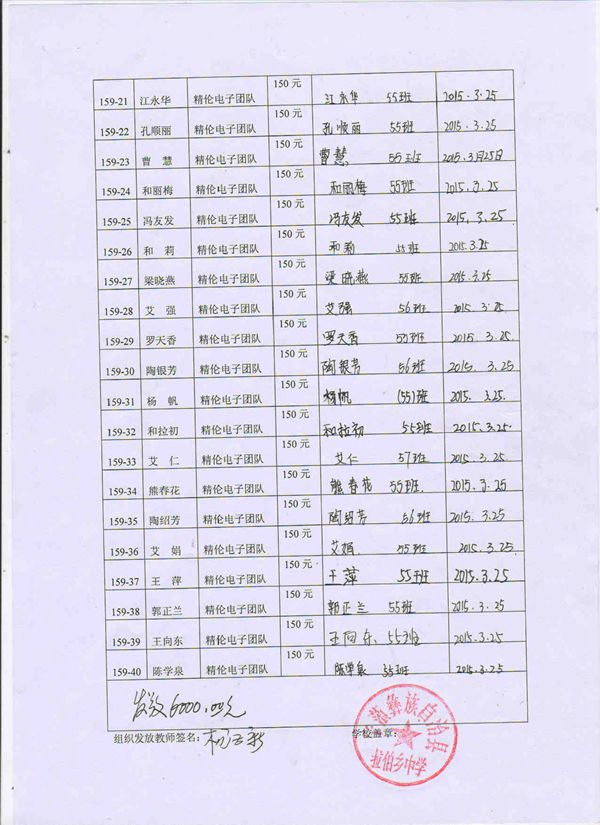 159-21 江永华 精伦电子团队 150元 江永华 55班 2015.3.25
159-22 孔顺丽 精伦电子团队 150元 孔顺丽 55班 2015.3.25
159-23 曹 慧 精伦电子团队 150元 曹慧 55班 2015.3月25日
159-24 和丽梅 精伦电子团队 150元 和丽梅 55班 2015.3.25
159-25 冯友发 精伦电子团队 150元 冯友发 55班 2015.3.25
159-26 和 莉 精伦电子团队 150元 和莉 55班 2015.3.25
159-27 梁晓燕 精伦电子团队 150元 梁晓燕 55班 2015.3.25
159-28 艾 强 精伦电子团队 150元 艾强 56班 2015.3.25
159-29 罗天香 精伦电子团队 150元 罗天香 55班 2015.3.25
159-30 陶银芳 精伦电子团队 150元 陶银芳 56班 2015.3.25
159-31 杨 帆 精伦电子团队 150元 杨帆 (55)班 2015.3.25
159-32 和拉初 精伦电子团队 150元 和拉初 55班 2015.3.25
159-33 艾 仁 精伦电子团队 150元 艾仁 57班 2015.3.25
159-34 熊春花 精伦电子团队 150元 熊春花 55班 2015.3.25
159-35 陶绍芳 精伦电子团队 150元 陶绍芳 56班 2015.3.25
159-36 艾 娟 精伦电子团队 150元 艾娟 55班 2015.3.25
159-37 王 萍 精伦电子团队 150元 王萍 55班 2015.3.25
159-38 郭正兰 精伦电子团队 150元 郭正兰 55班 2015.3.25
159-39 王向东 精伦电子团队 150元 王向东 55班 2015.3.25
159-40 陈学泉 精伦电子团队 150元 陈学泉 55班 2015.3.25
发放6000.00元
组织发放教师签名: 学校盖章:
蒗彝族自治县
拉伯乡中学